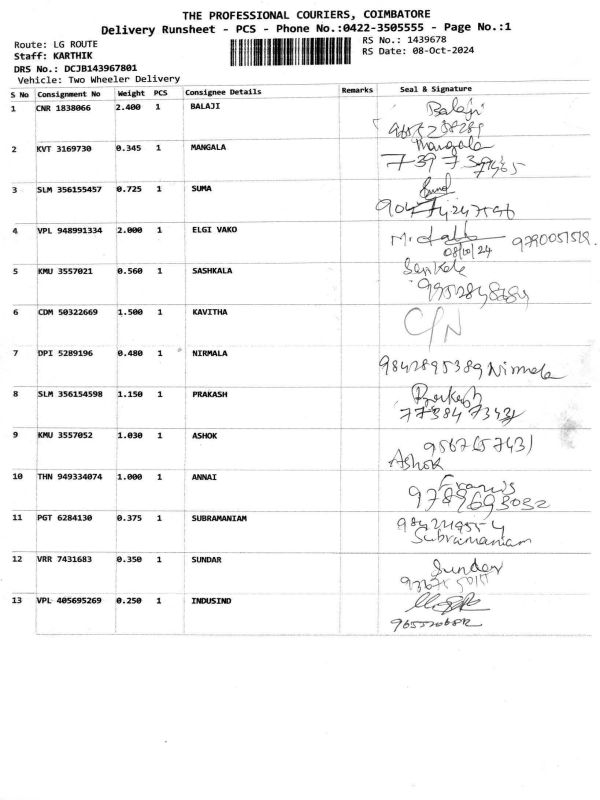 THE PROFESSIONAL COURIERS, COIMBATORE
Delivery Runsheet - PCS - Phone No.:0422-3505555 - Page No.:1
Route: LG ROUTE
RS No.: 1439678
Staff: KARTHIK
RS Date: 08-Oct-2024
DRS No.: DCJB143967801
Vehicle: Two Wheeler Delivery
S No Consignment No Weight PCS Consignee Details Remarks Seal & Signature
1 CNR 1838066 2.400 1 BALAJI Balaji
2 KVT 3169730 0.345 1 MANGALA Mangala
3 SLM 356155457 0.725 1 SUMA
4 VPL 948991334 2.000 1 ELGI VAKO
08/10/24
5 KMU 3557021 0.560 1 SASHKALA
6 CDM 50322669 1.500 1 KAVITHA C/N
7 DPI 5289196 0.480 1 NIRMALA
9842895389 Nirmala
8 SLM 356154598 1.150 1 PRAKASH
9 KMU 3557052 1.030 1 ASHOK
Ashok
10 THN 949334074 1.000 1 ANNAI Francis
9789693032
11 PGT 6284130 0.375 1 SUBRAMANIAM
Subramaniam
12 VRR 7431683 0.350 1 SUNDAR Sunder
13 VPL 405695269 0.250 1 INDUSIND